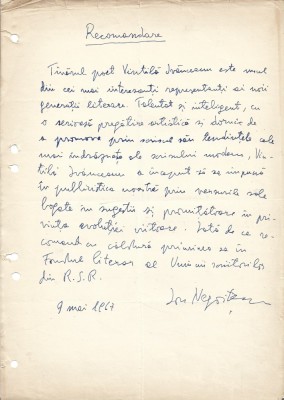 Recomandare
Tînărul poet Vintilă Ivănceanu este unul
din cei mai interesanți reprezentanți ai noii
generații literare. Talentat și inteligent, cu
o serioasă pregătire artistică și dornic de
a promova prin scrisul său tendințele cele
mai îndrăznețe ale scrisului modern, Vin-
tilă Ivănceanu a început să se impună
în publicistica noastră prin versurile sale
bogate în sugestii și promițătoare în pri-
vința evoluției viitoare. Iată de ce re-
comand cu căldură primirea sa în
Fondul literar al Uniunii scriitorilor
din R.S.R.
9 mai 1967
Ion Negoițescu